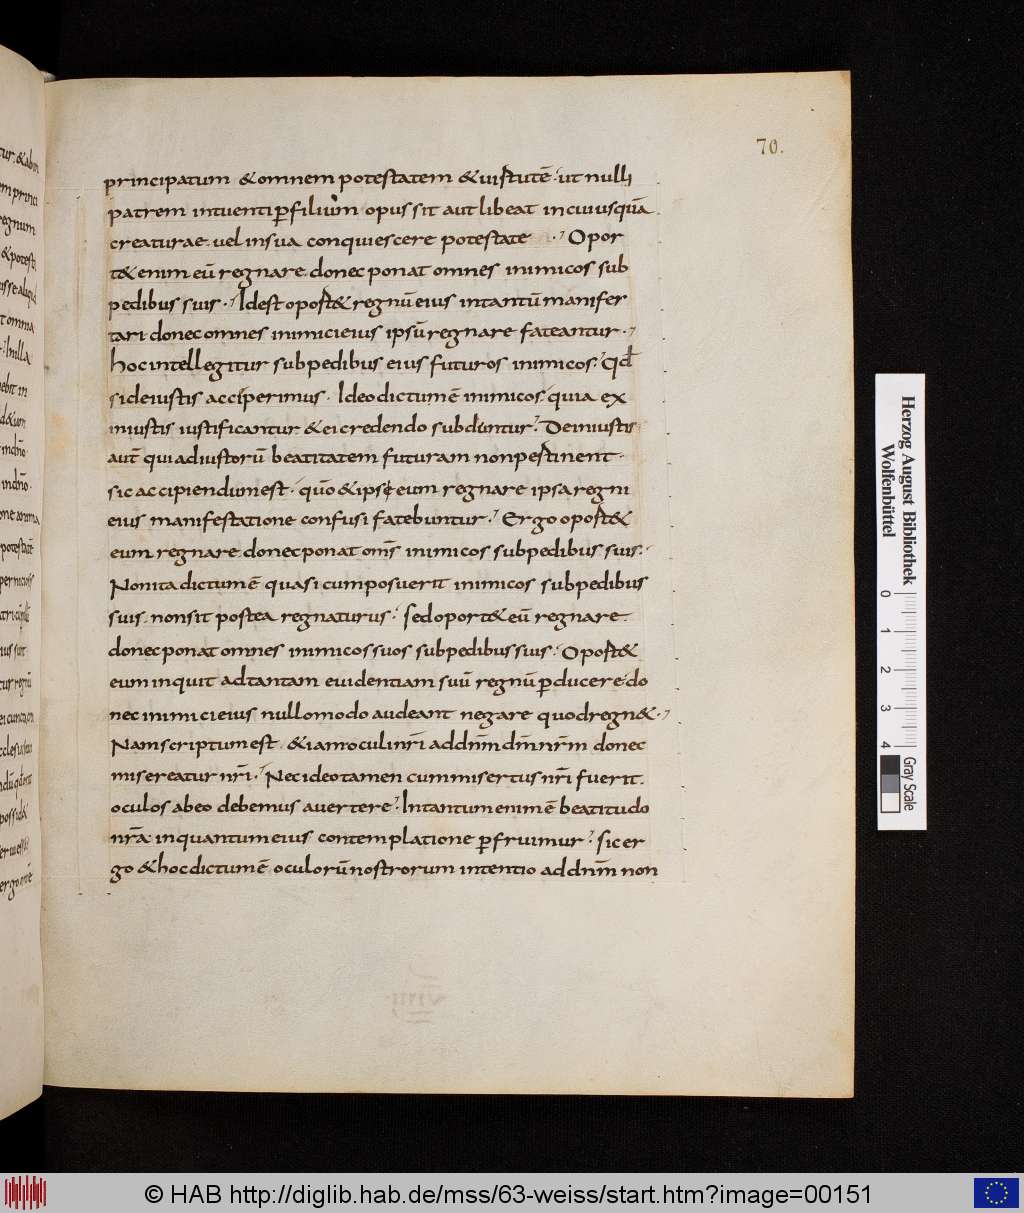 70.
principatum & omnem potestatem & uirtutē. ut nulli
patrem intuenti p̄ filiùm opus sit aut libeat in cuiusquā
creaturae. uel in sua conquiescere potestate. Opor
t& enim eū regnare. donec ponat omnes inimicos sub
pedibus suis. Id est oport& regnū eius intantū manifes
tari donec omnes inimici eius ipsū regnare fateantur.
hoc intellegitur sub pedibus eius futuros inimicos. Qđ
si de iustis acciperimus. Ideo dictum ē inimicos. quia ex
iniustis iustificantur & ei credendo subduntur. De iniustis
aut̄ qui ad iustorū beatitatem futuram non pertinent.
sic accipiendum est. quō & ipse eum regnare ipsa regni
eius manifestatione confusi fatebuntur. Ergo oport&
eum regnare donec ponat om̄s inimicos sub pedibus suis.
Non ita dictum ē quasi cum posuerit inimicos sub pedibus
suis. non sit postea regnaturus. sed oport& eū regnare.
donec ponat omnes inimicos suos sub pedibus suis. Oport&
eum inquit ad tantam euidentiam suū regnū p̄ducere. do
nec inimici eius nullo modo audeant negare quod regn&.
Nam scriptum est. & iam oculi nr̄i ad dnm̄ dm̄ nr̄m donec
misereatur nr̄i. Nec ideo tamen cum misertus nr̄i fuerit.
oculos ab eo debemus auertere. Intantum enim ē beatitudo
nr̄a. inquantum eius contemplatione p̄fruimur. sic er
go & hoc dictum ē oculorū nostrorum intentio ad dnm̄ non
Herzog August Bibliothek
Wolfenbüttel
0 1 2 3 4
Gray Scale
© HAB http://diglib.hab.de/mss/63-weiss/start.htm?image=00151